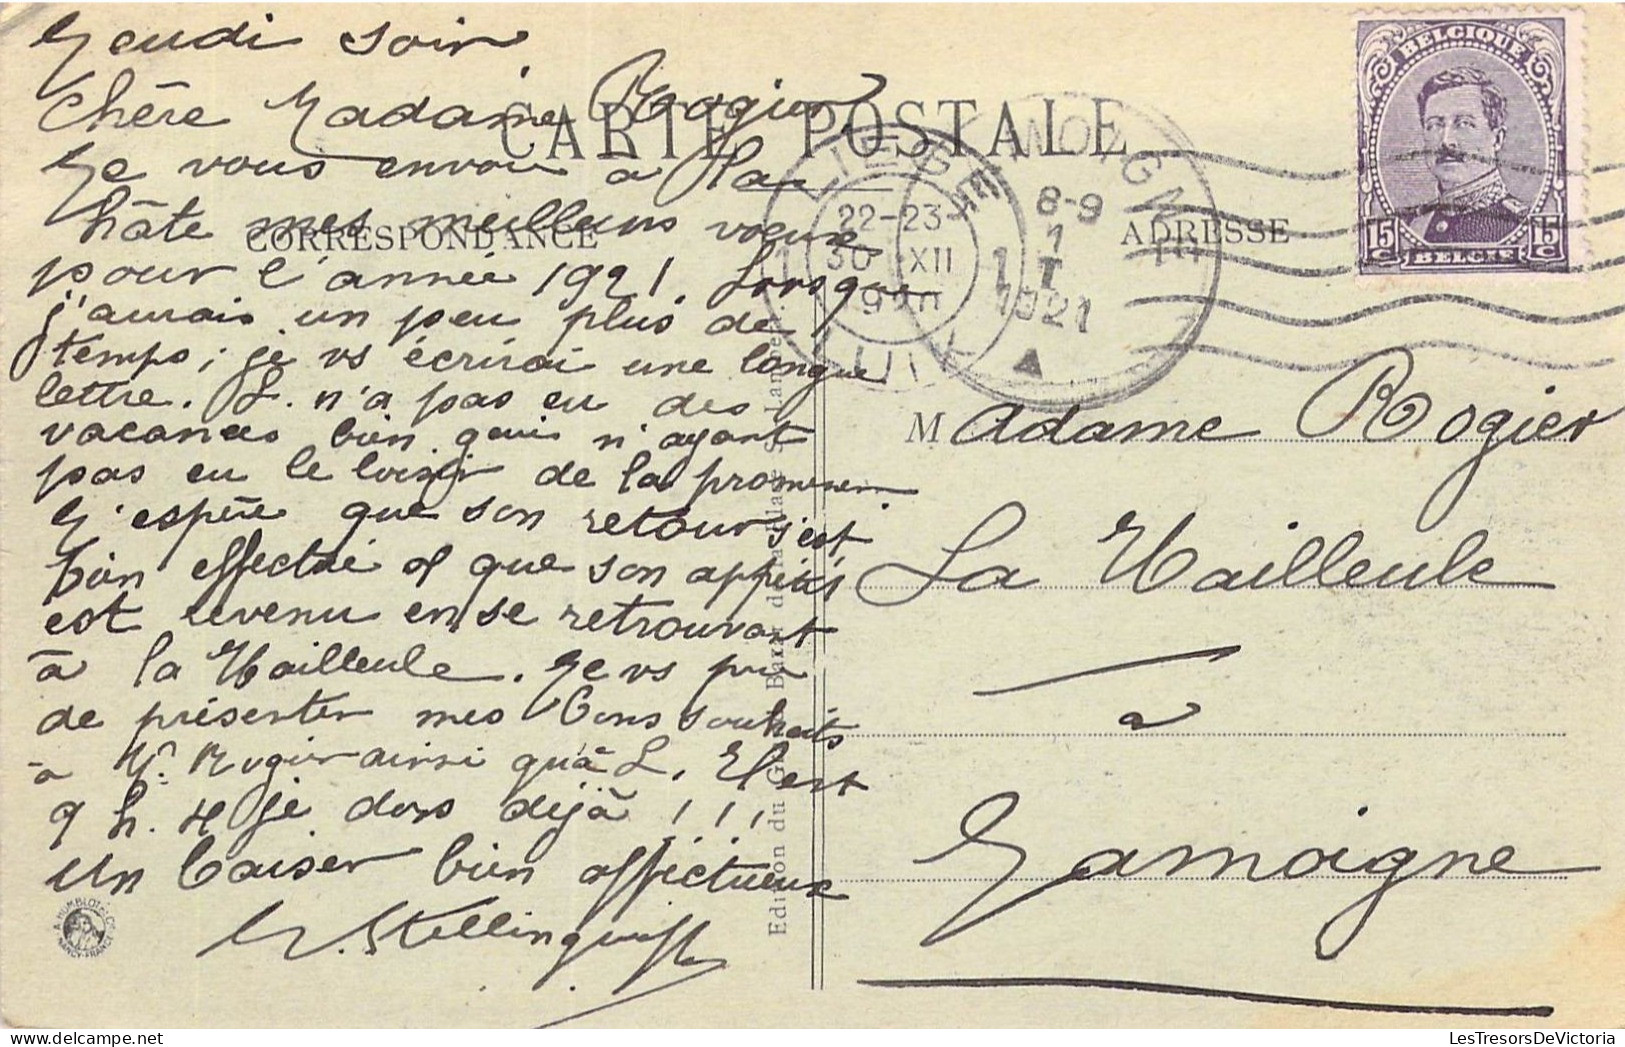 Jeudi soir,
Chère Madame Rogier
CARTE POSTALE
Je vous envoie à la
hâte mes meilleurs vœux
CORRESPONDANCE
ADRESSE
pour l'année 1921. Lorsque
j'aurais un peu plus de
temps, je vs écrirai une longue
lettre. L. n'a pas eu des
vacances bien gaies n'ayant
pas eu le loisir de la promener.
J'espère que son retour s'est
bien effectué et que son appétit
est revenu en se retrouvant
à la Hailleule. Je vs prie
de présenter mes bons souhaits
à M. Rogier ainsi qu'à L. Il est
9 h. et je dors déjà !!!
Un baiser bien affectueux
M. Stellingwerff
BELGIQUE
15 C 15 C
BELGIE
LIEGE
22-23
30 XII
1920
LUIK
JAMOIGNE
8-9
1
I
1921
Madame Rogier
La Hailleule
à
Jamoigne
Edition du Grand Bazar de la place St Lambert
A. HUMBLOT & Cie
NANCY-FRANCE
LesTresorsDeVictoria.com